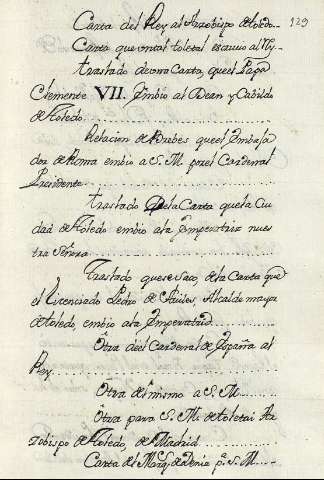 129
Carta del Rey al Arzobispo de Toledo
Carta que
Traslado de una Carta, que el Papa
Clemente VII. Ymbio al Dean y Cabildo
de Toledo
Relacion de Brebes que el Ymbaja
dor de Roma embio a S. M. por el Cardenal
Presidente
Traslado de la Carta que la Ciu
dad de Toledo embio a la Ymperatriz nues
tra Señora
Traslado que se saco de la Carta que
el Licenciado Pedro de Alcalde mayor
de Toledo, embio a la Ymperatriz
Otra del Cardenal de España al
Rey
Otra del mismo a S. M.
Otra para S. M. de Ar
zobispo de Toledo, de Madrid
Carta del Marq. de Denia p.ª S. M.